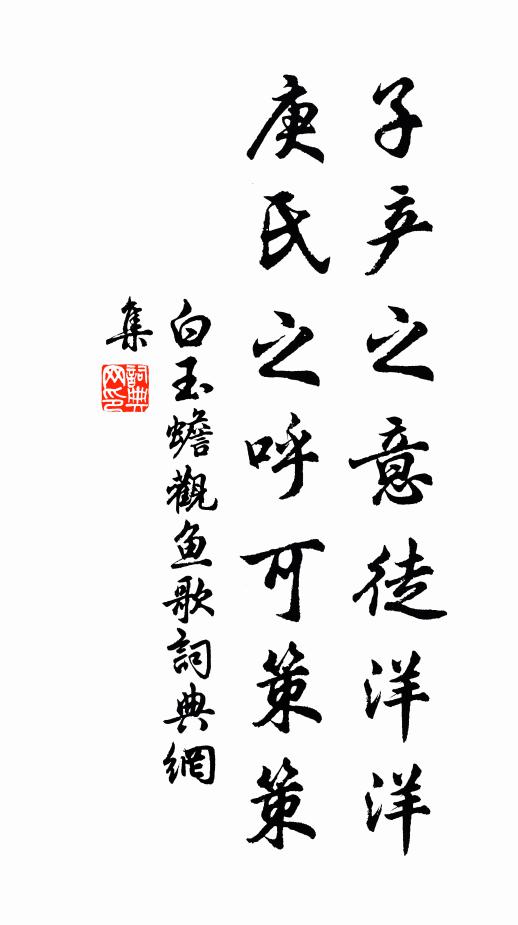 子产之意徒洋洋
庚氏之呼可策策
白玉蟾觀鱼歌詞典網
集
詞典网印